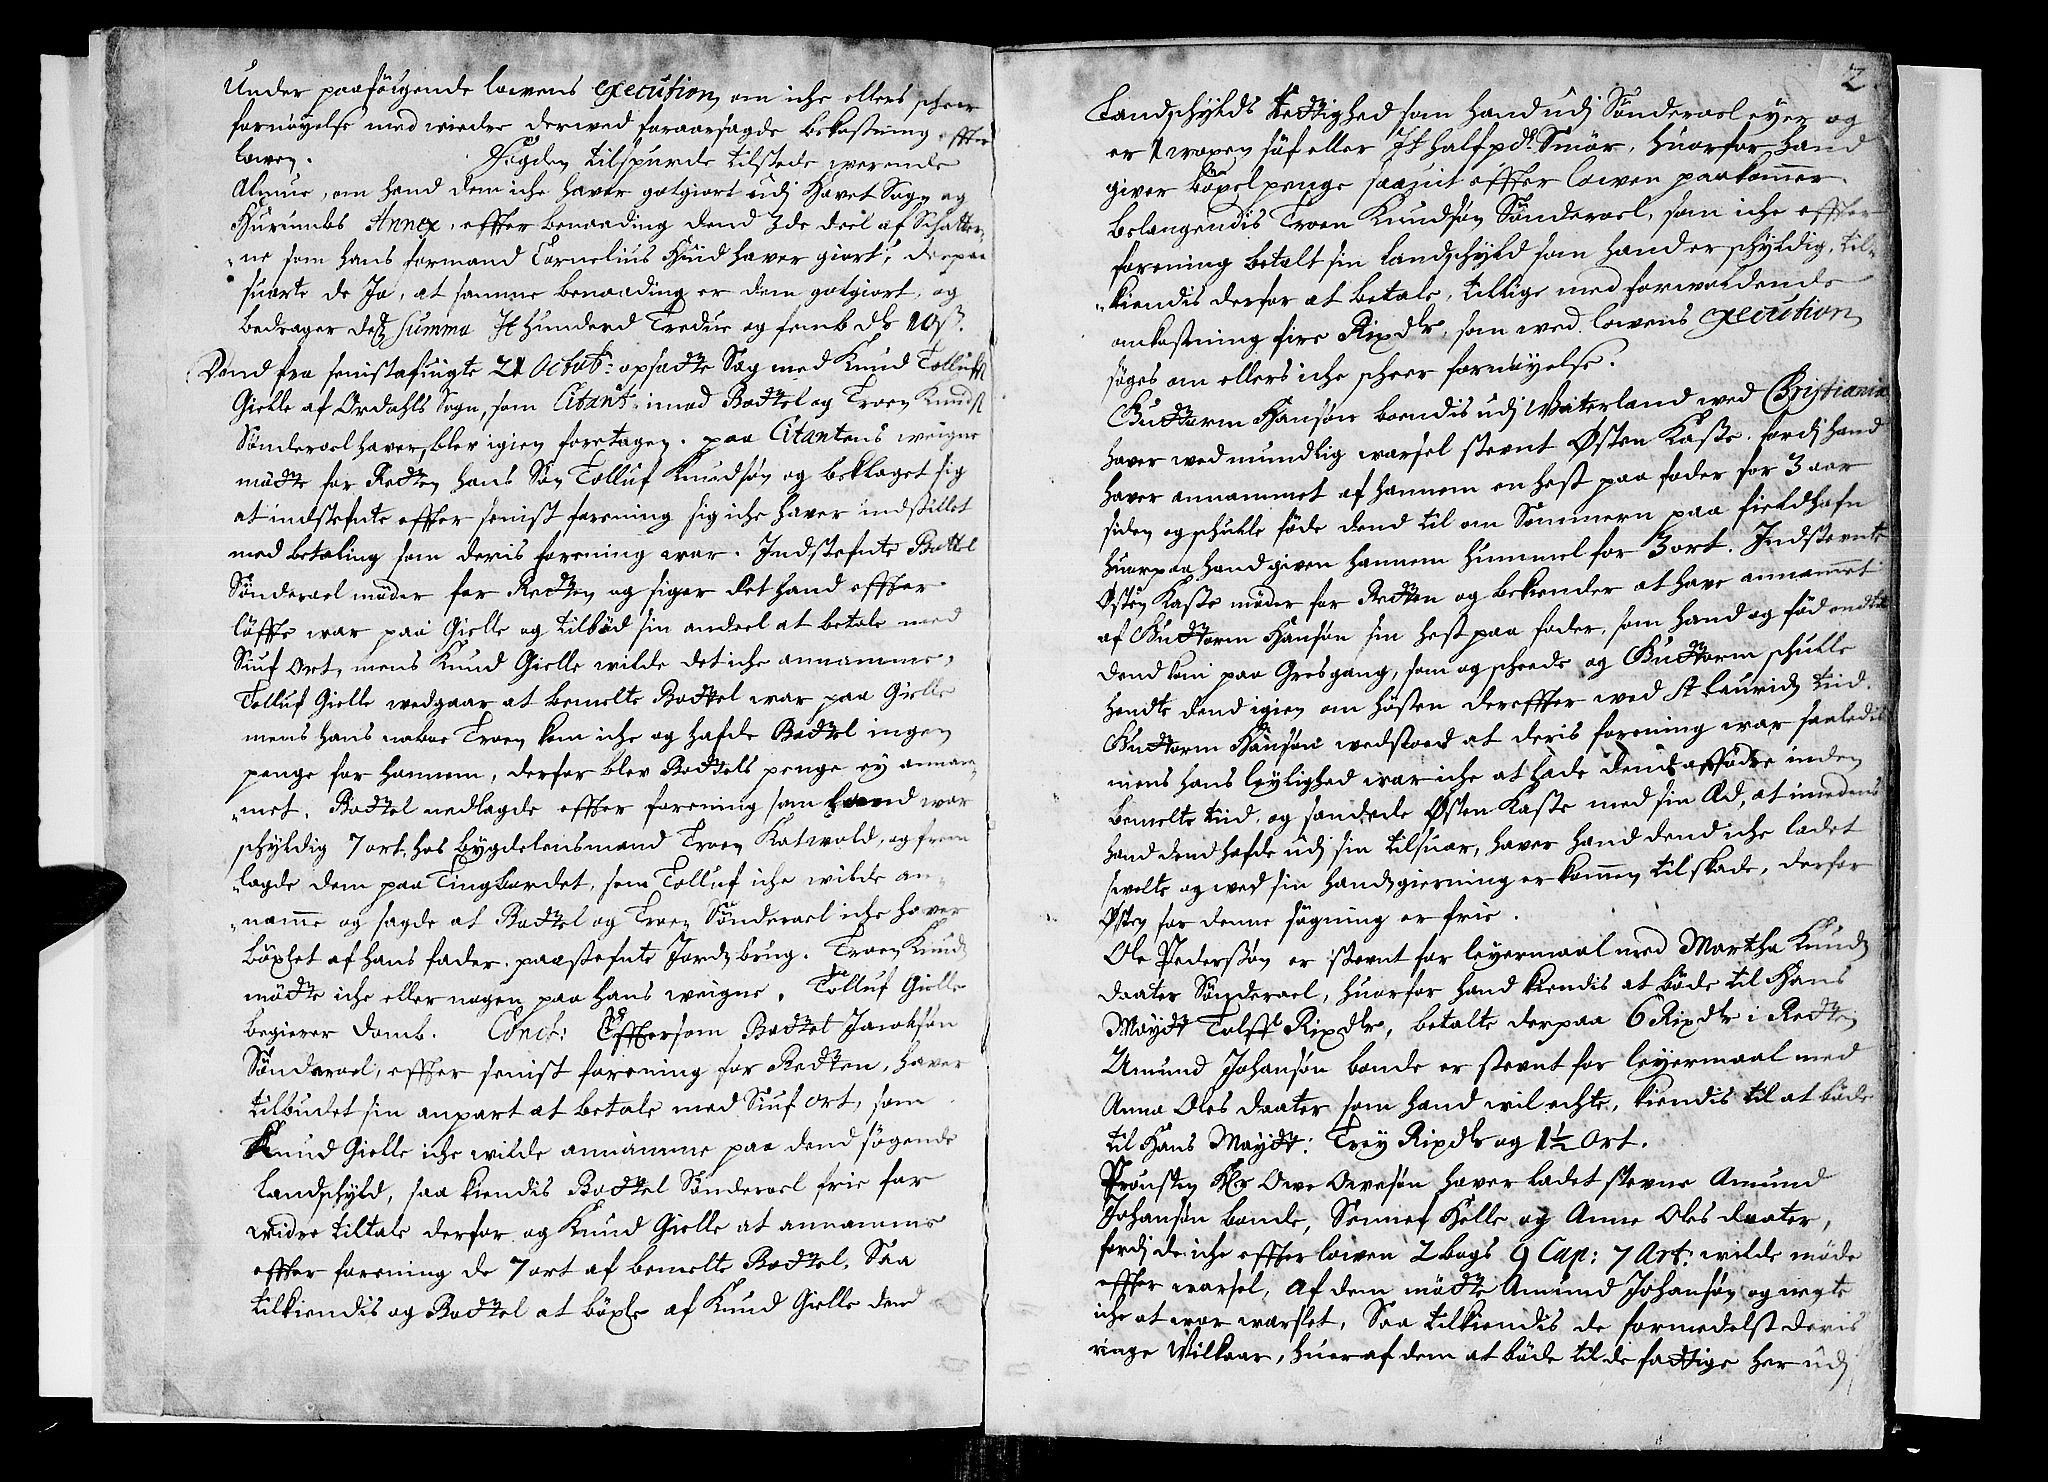 Under paafölgende lowens execution, om iche ellers scheer
fornöyelse med videre derved foraarsagde bekostning effter
lowen. Fogden tilspurde tilstede werende
Almue, om hand dem iche haver gotgiort udj Havet Sogn og
Hurumbs Annex, effter benaading dend 3de deel af Schatter-
ne som hans formand Cornelius Hiüd haver giort, derpaa
suarte de Ja, at samme benaading er dem gotgiort, og
bedrager dess Summa It hunderd Tredue og femb dr 10 ß.
Dend fra senistafuigte 21 Octob: opsadte Sag med Knud Tollufs:
Gielle af Ordahls Sogn, som Citant, imod Bottel og Troen Knuds:
Sönderoel haver, blev igien foretagen. paa Citantens weigne
mödte for Retten hans Sön Tolluf Knudsön og beklaget sig
at indstefnte effter senist forening sig iche haver indstillet
med betaling som deris forening war. Indstefnte Bottel
Sönderoel möder for Retten og siger det hand effter
löffte war paa Gielle og tilböd sin andeel at betale med
Siuf ort, mens Knud Gielle wilde det iche annamme,
Tolluf Gielle wedgaar at bemelte Bottel war paa Gielle
mens hans naboe Troen kom iche og hafde Bottel ingen
penge for hannem, derfor blev Bottels penge ey annam-
met. Bottel nedlagde effter forening som haand war
schyldig 7 ort, hos bygdelensmand Troen Katwold, og frem
lagde dem paa Tingbordet, som Tolluf iche wilde an-
namme og sagde at Bottel og Troen Sönderoel iche haver
böxlet af hans fader paastefnte Jordzbrug. Troen Knuds:
mödte iche eller nogen paa hans weigne. Tolluf Gielle
begierer domb. Concl: Effttersom Bottel Jacobsön
Sönderoel, effter senist forening for Retten, haver
tilbudet sin anpart at betale med Siuf ort, som
Knud Gielle iche wilde annamme paa dend sögende
landschyld, saa kiendis Bottel Sönderoel frie for
widre tiltale derfor og Knud Gielle at annamme
effter forening de 7 ort af bemelte Bottel. Saa
tilkiendis og Bottel at böxle af Knud Gielle dend
2
Landschylds Rettighed som hand udj Sönderoel eyer og
er 1 woxen söf eller It half pd: Smör, huorfor hand
giver böxel penge saavit effter lowen paakommer.
Belangendis Troen Knudsön Sönderoel, som iche effter
forening betalt sin landschyld som hand er schyldig, til-
kiendis derfor at betale, tillige med forvoldende
omkostning fire Rixdlr, som wed lowens execution
söges om ellers iche scheer fornöyelse.
Guttorm Hansön boendis udj Waterland wed Christiania
haver wed mundlig warsel stevnt Østen Kaste, fordj hand
haver annammet af hannem en hest paa foder for 3 aar
siden og schulle föde dend til om Sommern paa fieldhafn
huorpaa hand given hannem hummel for 3 ort. Indstevnte
Østen Kaste möder for Retten og bekiender at have annammet
af Guttorm Hansön sin hest paa foder, som hand og föd indtil
dend kom paa Gresgang, som og scheede og Guttorm schulle
hendte dend igien om hösten dereffter wed St Lauridz tiid.
Guttorm Hansön wedstoed at deris forening war saaledis
mens hans leylighed war iche at hade dend affödre inden
bemelte tiid, og sandede Østen Kaste med sin Æd, at imedens
hand dend hafde udj sin tilsuar, haver hand dend iche ladet
swelte og wed sin handz gierning er kommen til skade, derfor
Østen for denne sögning er frie.
Ole Pedersön er stevnt for leyermaal med Martha Knudz
daater Sönderoel, huorfor hand kiendis at böde til Hans
Maytt Tolff Rixdlr, betalte derpaa 6 Rixdlr i Retten
Amund Johansön bonde er stevnt for leyermaal med
Anna Oles daater som hand wil echte, kiendis til at böde
til Hans Maytt: Trey Rixdlr og 1½ ort.
Prousten Hr Owe Owesön haver ladet stevne Amund
Johansön bonde, Sennef Helle og Anne Oles daater,
fordj de iche effter lowen 2 bogs 9 Cap: 7 Art: wilde möde
effter warsel, af dem mödte Amund Johansön og negte
iche at war warslet, Saa tilkiendis de formedelst deris
ringe Wilkaar, huer af dem at böde til de fattige her udj